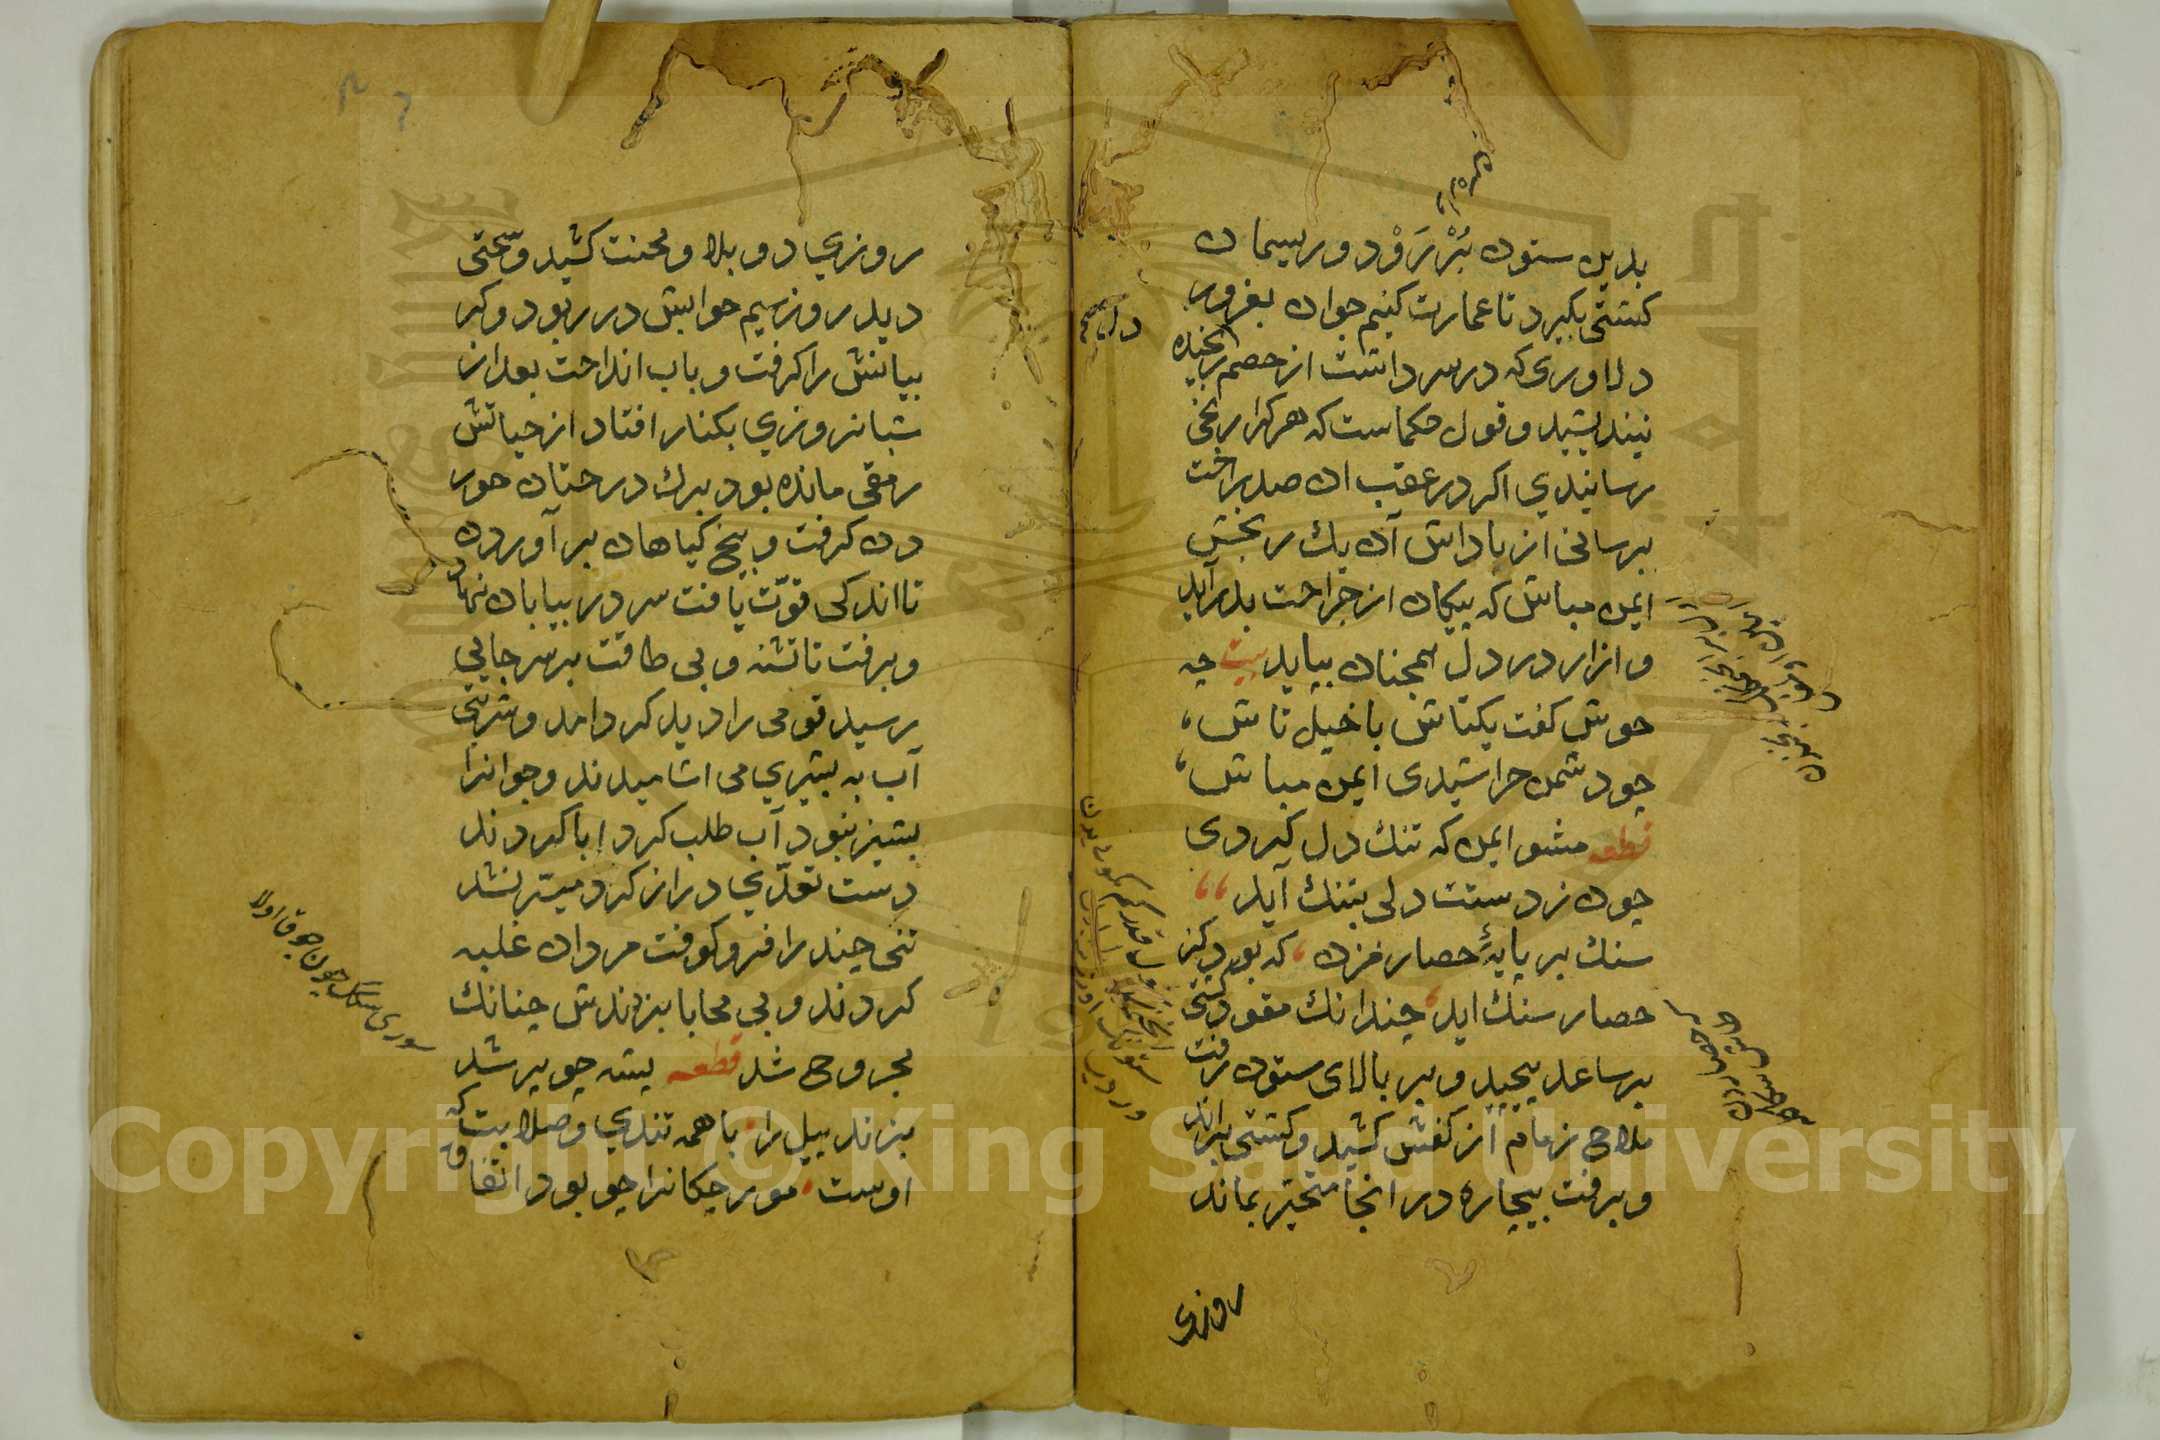 بدین ستون بَرْ رَوْد و ریسمان
کشتی بکیرد تا عمارت کنیم جوان بغرور
دلاوری که در سر داشت از خصم رنجیده
نیندیشید و قول حکماست که هر کرا رنجی
رسانیدی اکر در عقب ان صد راحت
برسانی از پاداش آن یك رنجش
ایمن مباش که پیکان از جراحت بدر آید
و ازار در دل همچنان بیاید بیت چه
خوش کفت یکتاش با خیل تاش،
چو دشمن خراشیدی ایمن مباش،
قطعه مشو ایمن که تنك دل کردی
چون ز دستت دلی بتنك آید
سنك بر پایهٔ حصار مزن، که بود کز
حصار سنك اید، چندانك مقود کشتی
بر ساعد پیچید و بر بالای ستون رفت
ملاح زمام از کفش کشید و کشتی براند
و برفت بیچاره در انجا متحیر بماند
روزی
روزي دو بلا و محنت کشید و سختی
دید روز سیم خوابش در ربود و کر
یبانش را کرفت و باب انداخت بعد از
شبانروزي بکنار افتاد از حیاتش
رمقی مانده بود برك درختان خور
دن کرفت و بیخ کیاهان بر آوردن
تا اندکی قوّت یافت سر در بیابان نهاد
و برفت تا تشنه و بی طاقت بر سر چاهی
رسید قومی را دید کرد امده و شربتی
آب به پشیزي می اشامیدند و جوانرا
پشیز نبود آب طلب کرد ابا کردند
دست تعدّي دراز کرد میسّر نشد
تنی چند را فرو کوفت مردان غلبه
کردند و بی محابا بزدندش چنانك
مجروح شد قطعه پشه چو پر شد
بزند پیل را، با همه تندي و صلابت که
اوست، مورچکانرا چو بود اتفاق
Copyright © King Saud University